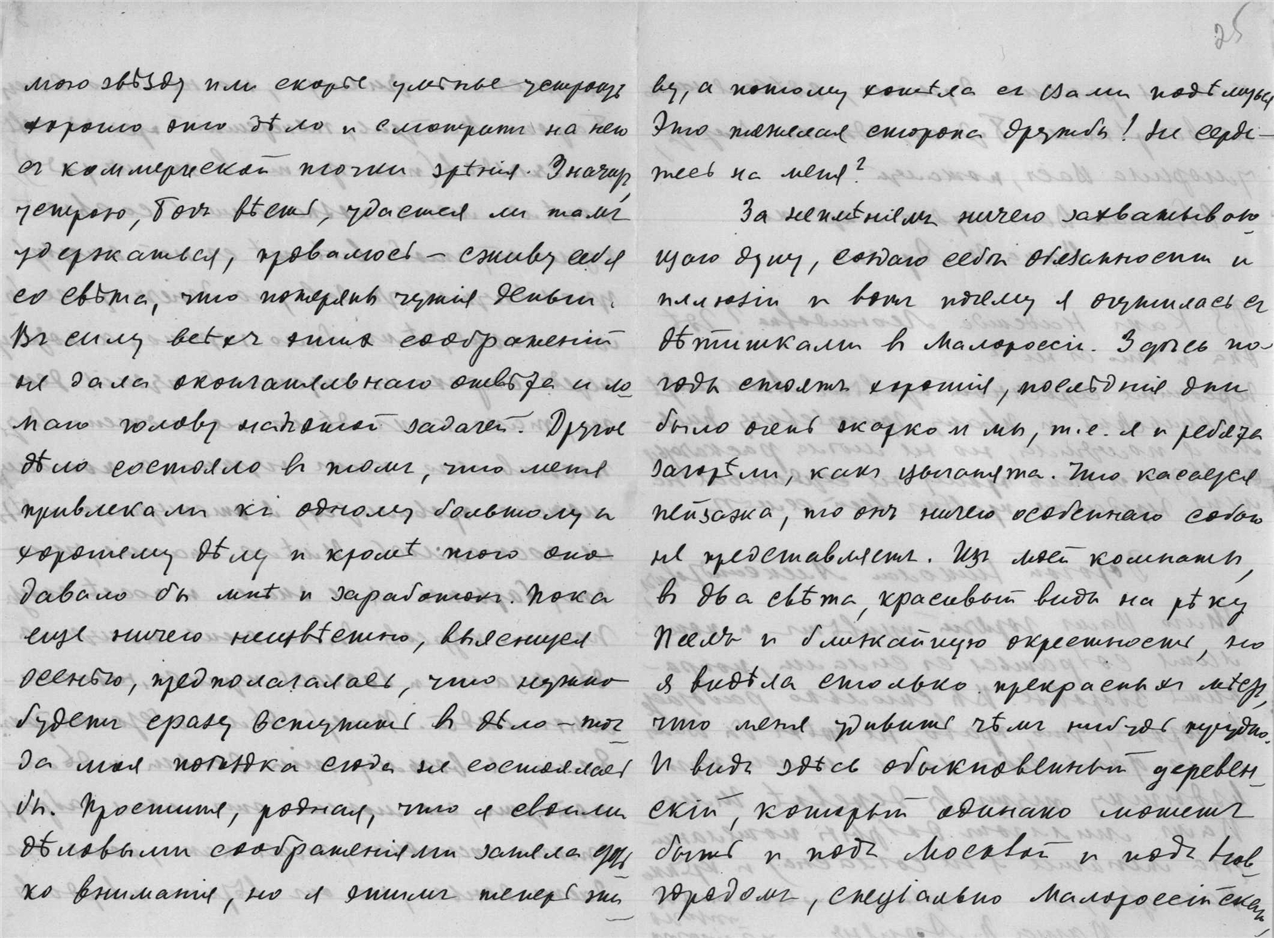 мою звѣзду или скорѣе умѣнье устроить
хорошо это дѣло и смотрить на него
съ коммерческой точки зрѣнія. Значитъ,
устрою, Богъ вѣсть, удастся ли тамъ
удержаться, провалюсь – сживу себя
со свѣта, что потеряны чужія деньги.
Въ силу всѣхъ этихъ соображеній
не дала окончательнаго отвѣта и ло
маю голову надъ этой задачей. Другое
дѣло состояло въ томъ, что меня
привлекали къ одному большому и
хорошему дѣлу и кромѣ того оно
давало бы мнѣ и заработокъ. Пока
еще ничего неизвѣстно, выяснится
осенью, предполагалось, что нужно
будетъ сразу вступить въ дѣло – тог
да моя поѣздка сюда не состоялась
бы. Простите, родная, что я своими
дѣловыми соображеніями заняла
ко вниманія, но я этимъ теперь жи
25
ву, а потому хотѣла съ Вами подѣлиться
Это тяжелая сторона дружбы! Не серди-
тесь на меня?
За неимѣніемъ ничего захватываю
щаго душу, создаю себѣ обязанности и
иллюзіи и вотъ почему я очутилась съ
дѣтишками въ Малороссіи. Здѣсь по
годы стоятъ хорошія, послѣдніе дни
было очень жарко и мы, т.е. я и ребята
загорѣли, какъ цыганята. Что касается
пейзажа, то онъ ничего особеннаго собою
не представляетъ. Изъ моей комнаты,
въ два свѣта, красивый видъ на рѣку
Псёлъ и ближайшую окрестность, но
я видѣла столько прекрасныхъ мѣстъ,
что меня удивить чѣмъ нибудь трудно.
И видъ здѣсь обыкновенный деревен
скій, который одинако можетъ
быть и подъ Москвой и подъ Нов
городомъ, спеціально Малороссійскаго,